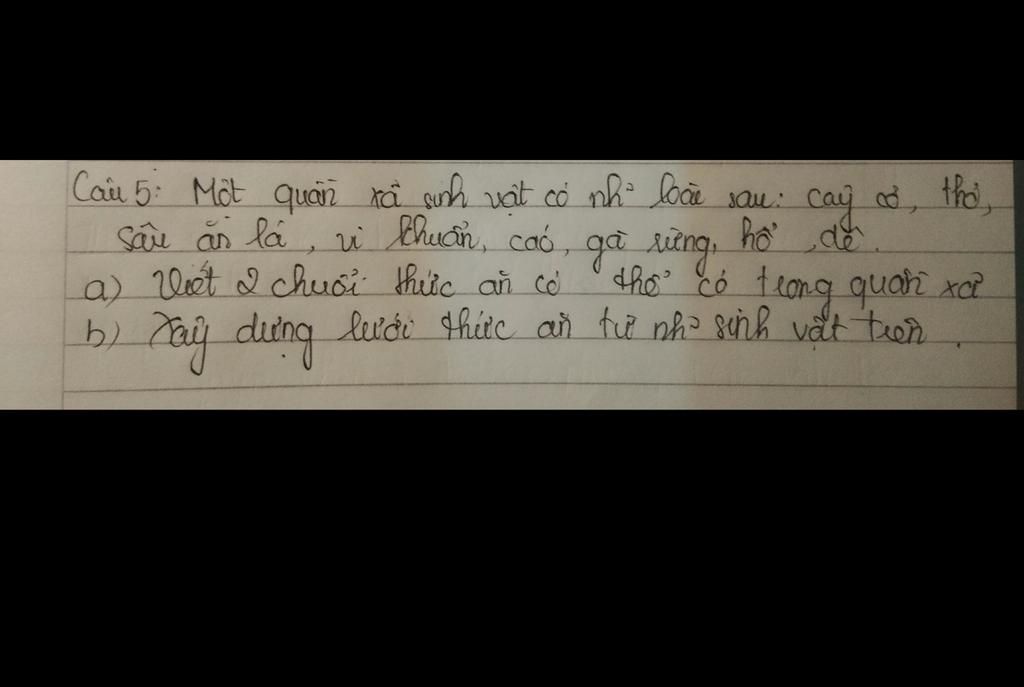 Câu 5: Một quần xã sinh vật có nh² loài sau: cây cỏ, thỏ,
sâu ăn lá, vi khuẩn, cáo, gà rừng, hổ, dê.
a) Viết 2 chuỗi thức ăn có thỏ có trong quần xã
b) Xây dựng lưới thức ăn từ nh² sinh vật trên.